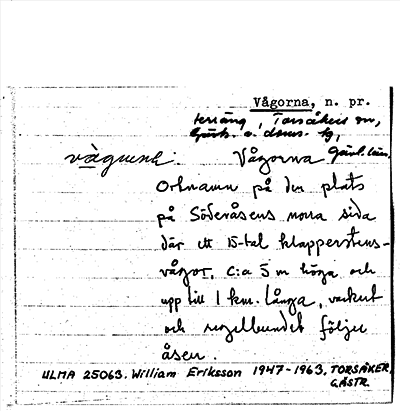 Vågorna, n. pr.
terräng, Torsåkers sn,
Gästr. o. doms. tg,
Gävl. län.
vàguṇa. Vågorna
Ortnamn på den plats
på Söderåsens norra sida
där ett 15-tal klapperstens-
vågor, c:a 5 m höga och
upp till 1 km. långa, vackert
och regelbundet följer
åsen.
ULMA 25063. William Eriksson 1947-1963, TORSÅKER,
GÄSTR.